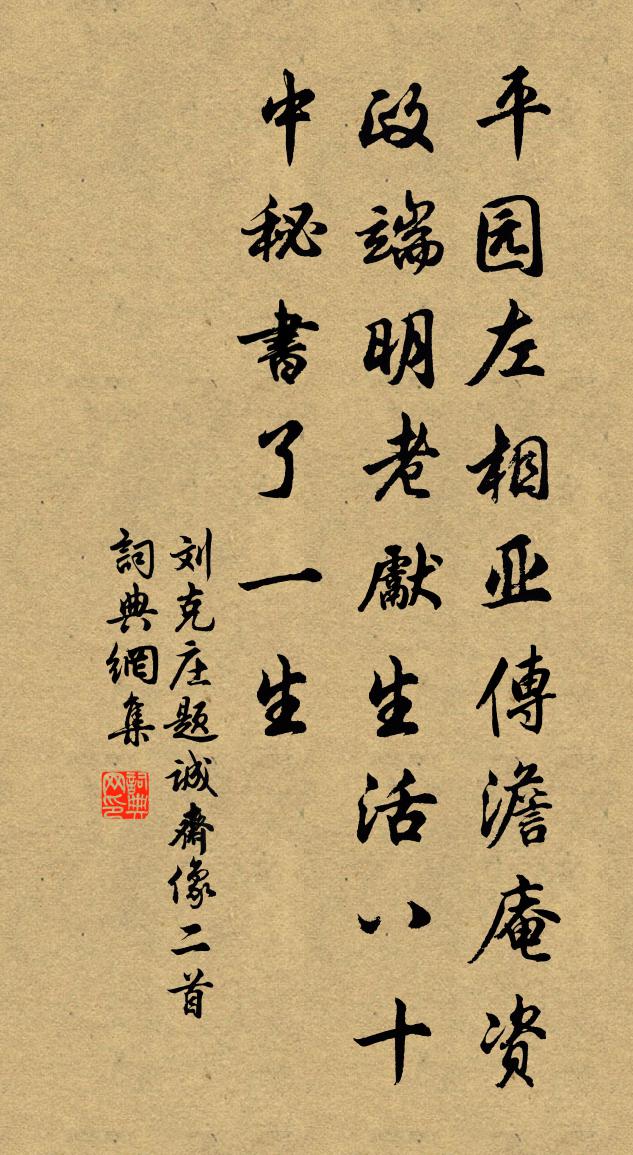 平园左相亚傅澹庵资
政端明老獻生活八十
中秘書了一生
刘克庄题诚齋像二首
詞典網集
詞典网印